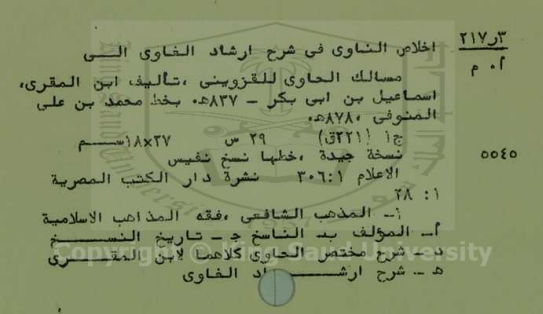 ٢١٧ر٣ اخلاص الناوى فى شرح ارشاد الغاوى الـــى
أ٠ م مسالك الحاوى للقزوينى ،تأليف ابن المقرى،
اسماعيل بن ابى بكر - ٨٣٧ه٠ بخط محمد بن على
المنوفى ،٨٧٨ه٠
ج١ (٢٢١ق) ٢٩ س ٢٧×١٨ســـم
٥٥٤٥ نسخة جيدة ،خطها نسخ نفيس
الاعلام ٣٠٦:١ نشرة دار الكتب المصرية
١: ٢٨
١- المذهب الشافعى ،فقه المذاهب الاسلامية
أ- المؤلف ب- الناسخ ج - تاريخ النســـخ
د- شرح مختصر الحاوى كلاهما لابن المقـــرى
ه - شرح ارشـــــاد الغاوى
Copyright © King Saud University